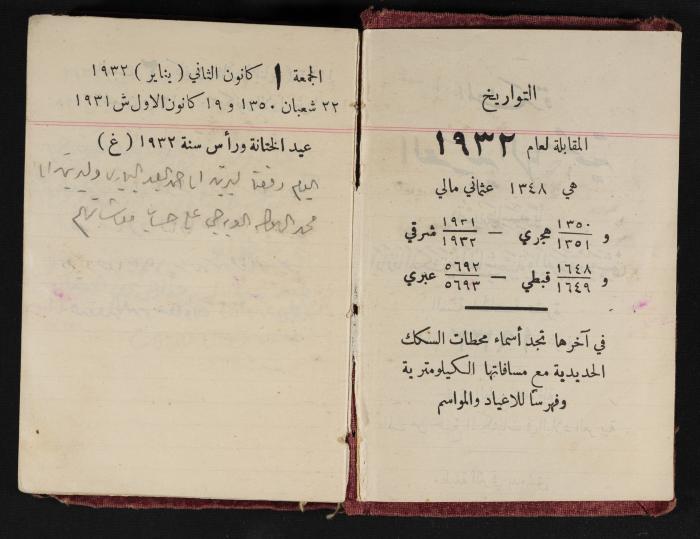 التواريخ
المقابلة لعام ١٩٣٢
هي ١٣٤٨ عثماني مالي
و ١٣٥٠/١٣٥١ هجري — ١٩٣١/١٩٣٢ شرقي
و ١٦٤٨/١٦٤٩ قبطي — ٥٦٩٢/٥٦٩٣ عبري
في آخرها تجد أسماء محطات السكك
الحديدية مع مسافاتها الكيلومترية
وفهرساً للاعياد والمواسم
الجمعة ١ كانون الثاني ( يناير ) ١٩٣٢
٢٢ شعبان ١٣٥٠ و ١٩ كانون الاول ش ١٩٣١
عيد الختانة ورأس سنة ١٩٣٢ ( غ )
اليوم
محمد على حساب